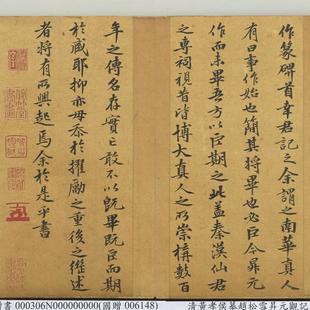 作篆碑首幸君記之余謂之南華真人
有曰事作始也簡其將畢也必巨今昇元
作而未畢吾方以巨期之此蓋秦漢仙君
之專祠視昔皆博大真人之所崇構數百
年之傳名存實亡敢不以既畢既巨而期
於箴耶抑亦毋忝於擢勵之重後之繼述
者將有所興起焉余於是乎書
書 000306N000000000(國贈 006148)
清黃孝侯摹趙松雪昇元觀記